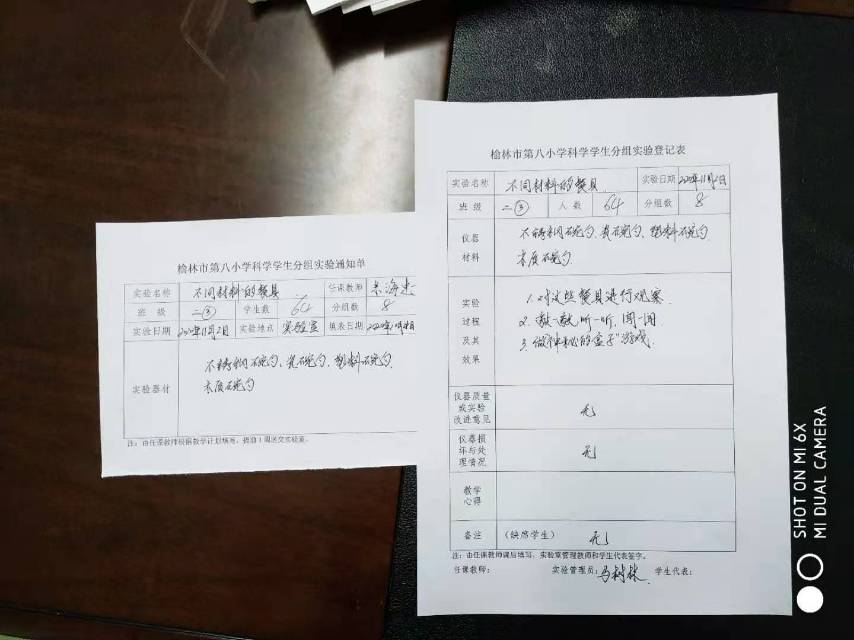 榆林市第八小学科学学生分组实验通知单
实验名称 不同材料的餐具 任课教师
班 级 二③ 学生数 64 分组数 8
实验日期 实验地点 实验室 填表日期
实验器材 不锈钢碗勺、瓷碗勺、塑料碗勺
木质碗勺
注:由任课教师根据教学计划填写,提前1周送交实验室。
榆林市第八小学科学学生分组实验登记表
实验名称 不同材料的餐具 实验日期
班 级 二③ 人 数 64 分组数 8
仪器 不锈钢碗勺、瓷碗勺、塑料碗勺
材料 木质碗勺
实验 1. 对这些餐具进行观察
过程 2. 敲一敲,听一听,闻一闻
及其 3. 做"神秘的盒子"游戏
效果
仪器质量
或实验 无
改进意见
仪器损
坏与处 无
理情况
教学
心得
备注 (缺席学生) 无
注:由任课教师课后填写,实验室管理教师和学生代表签字。
任课教师: 实验管理员: 学生代表:
SHOT ON MI 6X
MI DUAL CAMERA